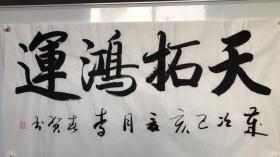 天拓鴻運
歲次己亥夏月書